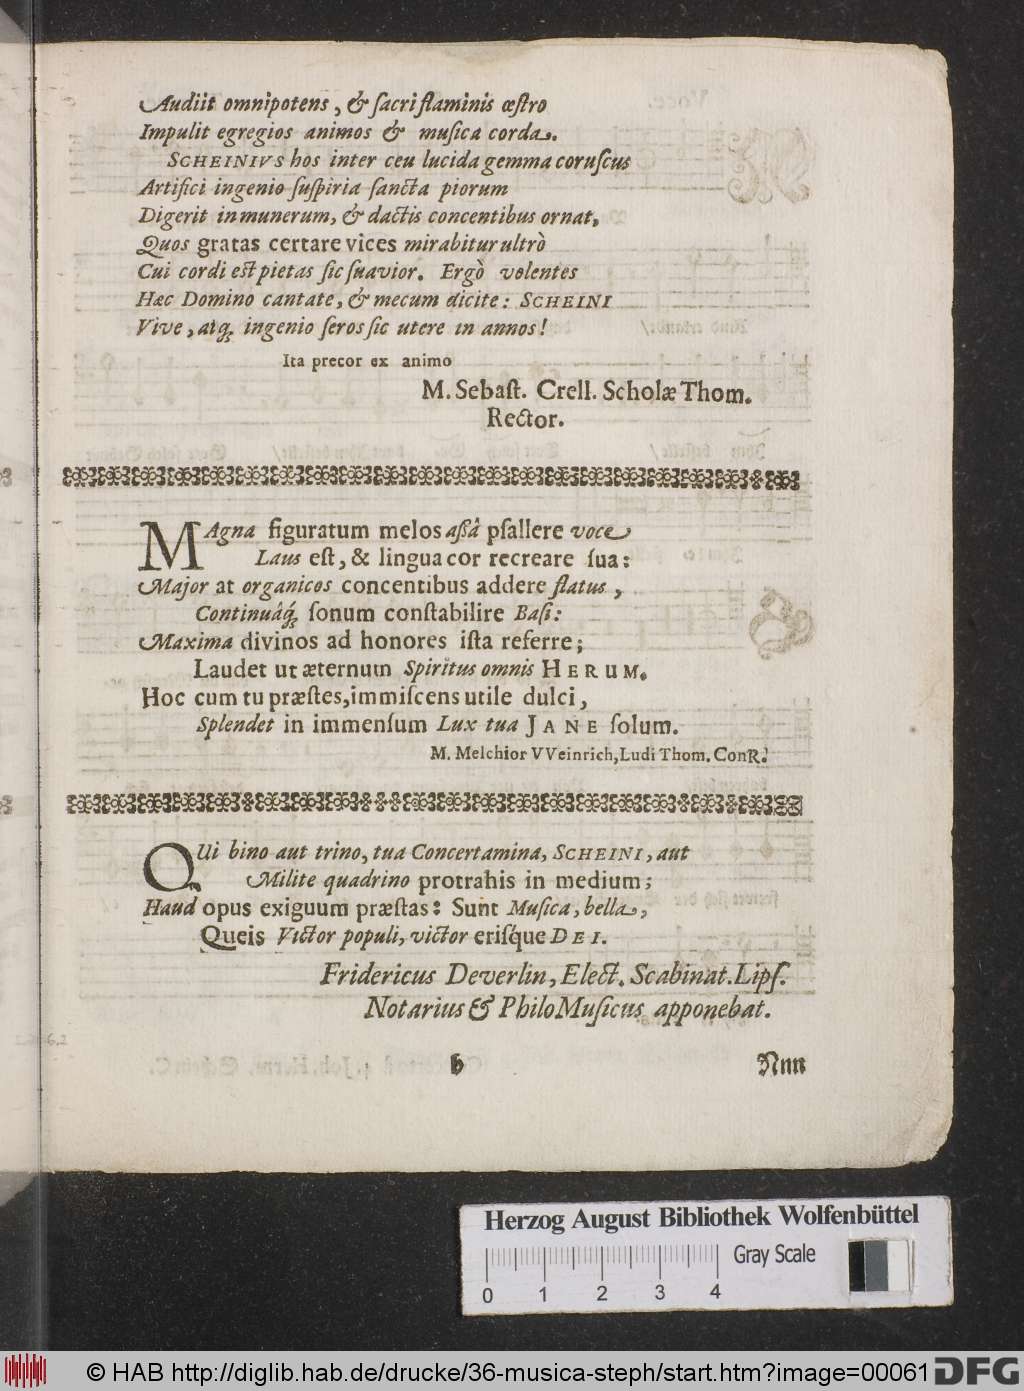 Audiit omnipotens, & sacri flaminis œstro
Impulit egregios animos & musica corda.
SCHEINIVS hos inter ceu lucida gemma coruscus
Artifici ingenio suspiria sancta piorum
Digerit in munerum, & dactis concentibus ornat,
Quos gratas certare vices mirabitur ultrò
Cui cordi est pietas sic suavior. Ergò volentes
Hæc Domino cantate, & mecum dicite: SCHEINI
Vive, atq; ingenio seros sic utere in annos!
Ita precor ex animo
M. Sebast. Crell. Scholæ Thom.
Rector.
MAgna figuratum melos assâ psallere voce
Laus est, & lingua cor recreare sua:
Major at organicos concentibus addere flatus,
Continuáq; sonum constabilire Basi:
Maxima divinos ad honores ista referre;
Laudet ut æternum Spiritus omnis HERUM.
Hoc cum tu præstes, immiscens utile dulci,
Splendet in immensum Lux tua JANE solum.
M. Melchior VVeinrich, Ludi Thom. ConR.
QUi bino aut trino, tua Concertamina, SCHEINI, aut
Milite quadrino protrahis in medium;
Haud opus exiguum præstas: Sunt Musica, bella,
Queis Victor populi, victor erisq́ue DEI.
Fridericus Deverlin, Elect. Scabinat. Lips.
Notarius & PhiloMusicus apponebat.
b Nnn
Herzog August Bibliothek Wolfenbüttel
Gray Scale
0 1 2 3 4
© HAB http://diglib.hab.de/drucke/36-musica-steph/start.htm?image=00061 DFG